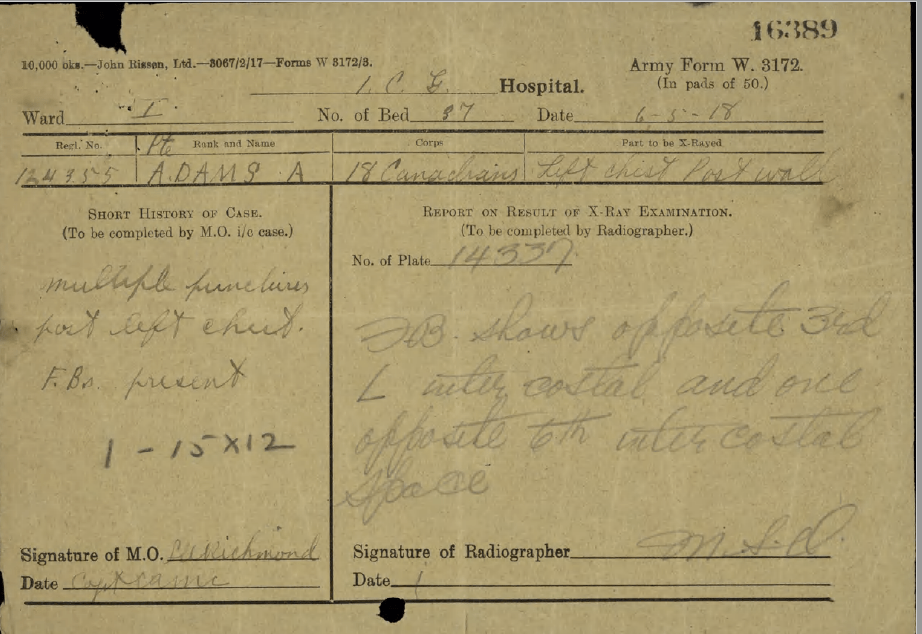 16389
10,000 bks.—John Rissen, Ltd.—8067/2/17—Forms W 3172/3.
Army Form W. 3172.
(In pads of 50.)
1. C. G. Hospital.
Ward I No. of Bed 37 Date 6-5-18
Regl. No. Pte Rank and Name Corps Part to be X-Rayed
124355 ADAMS A 18 Canadians Left chest Post wall
SHORT HISTORY OF CASE.
(To be completed by M.O. i/c case.)
multiple punctures
post left chest.
F.Bs. present
1 - 15 X 12
Signature of M.O. Richmond
Date Capt
REPORT ON RESULT OF X-RAY EXAMINATION.
(To be completed by Radiographer.)
No. of Plate 14337
FB. shows opposite 3rd
L inter costal and one
opposite 6th inter costal
space
Signature of Radiographer
Date